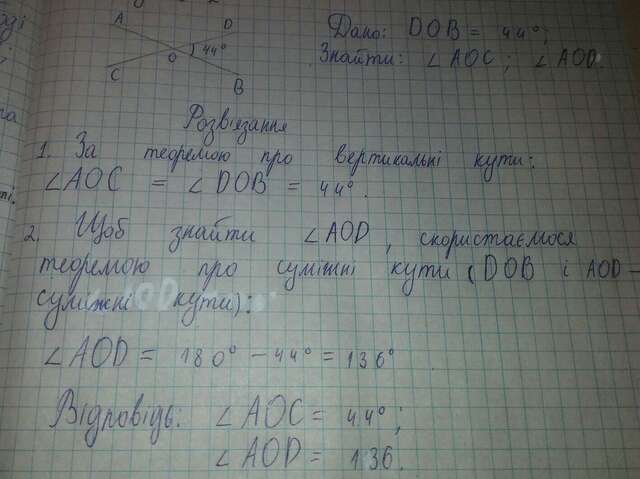 A D
44°
O
C B
Дано: DOB = 44°;
Знайти: ∠AOC; ∠AOD
Розвязання
1. За теоремою про вертикальні кути:
∠AOC = ∠DOB = 44°.
2. Щоб знайти ∠AOD, скористаємося
теоремою про суміжні кути (DOB і AOD -
суміжні кути):
∠AOD = 180° - 44° = 136°
Відповідь: ∠AOC = 44°;
∠AOD = 136.